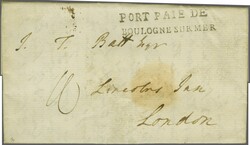 PORT PAYÉ DE
BOULOGNE SUR MER
J. T. Batt Esqr
Lincolns Inn
London